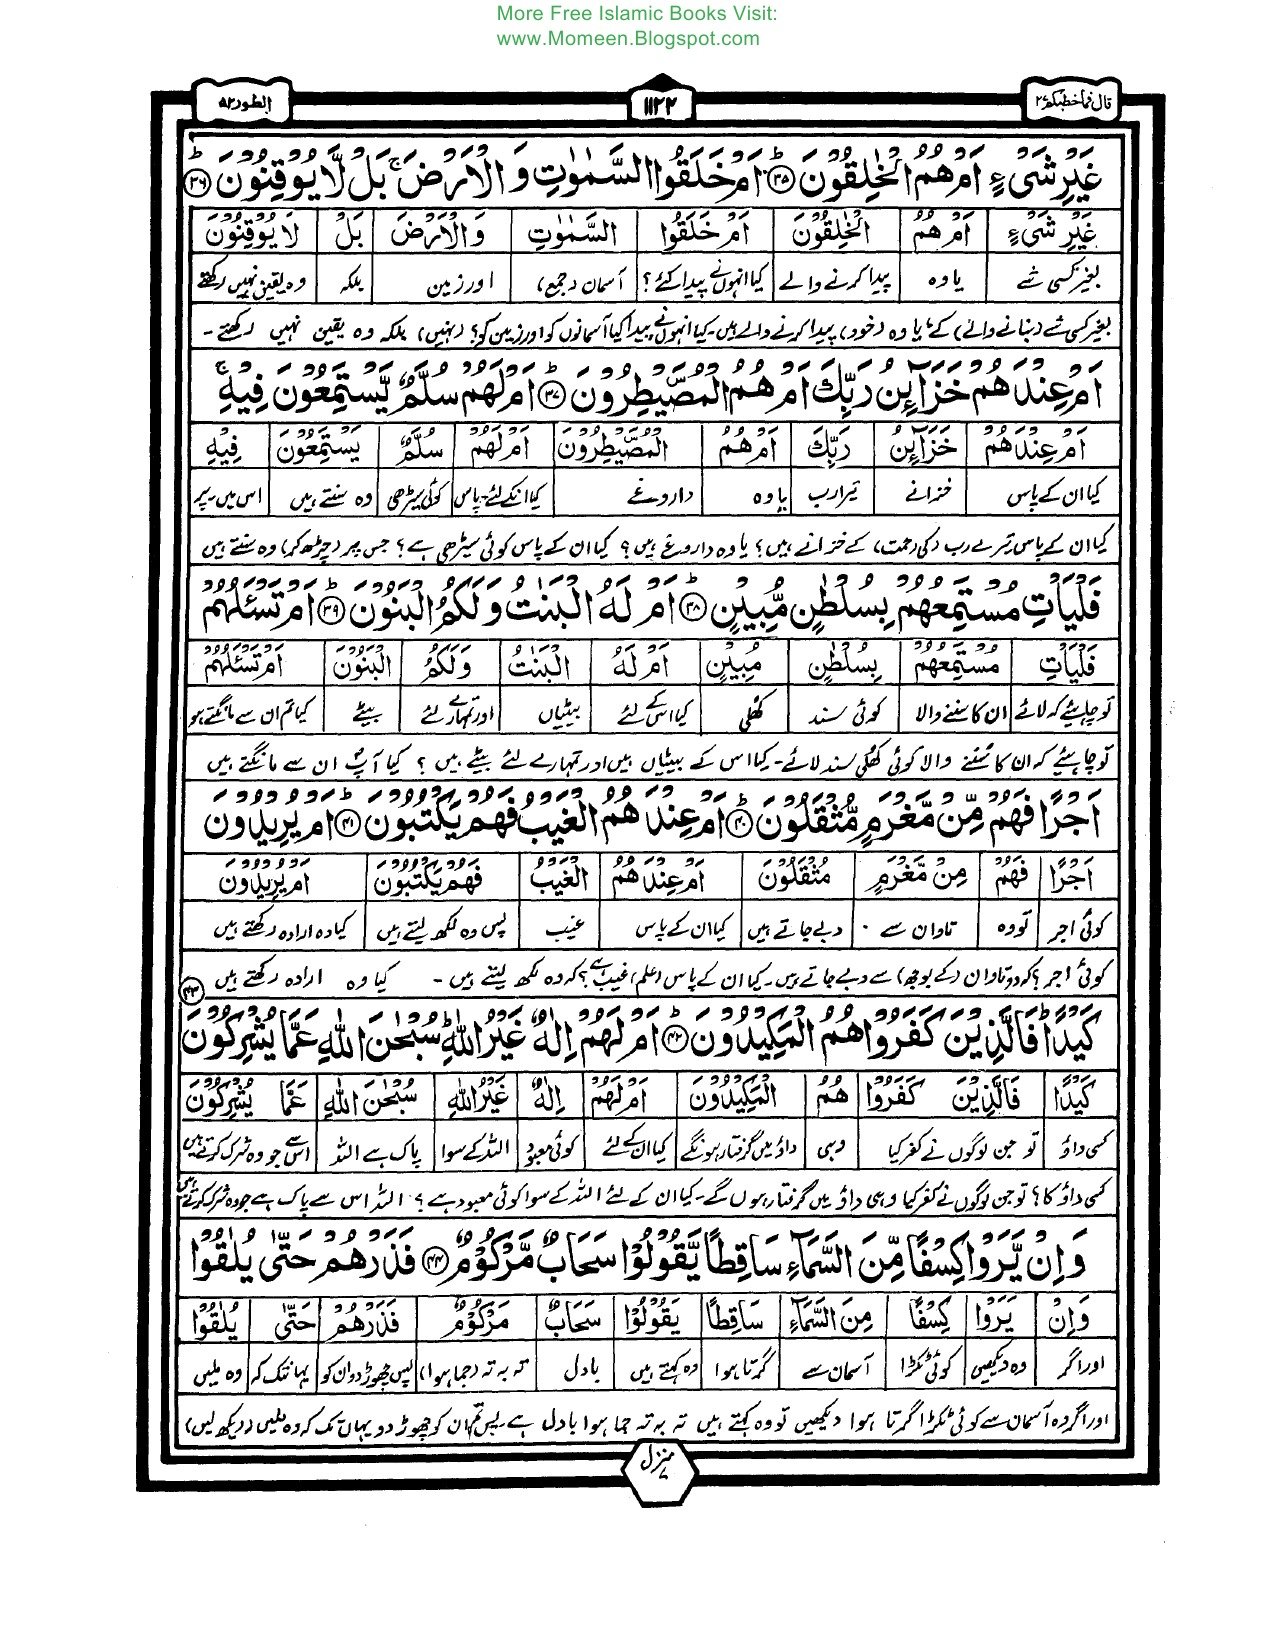 More Free Islamic Books Visit:
www.Momeen.Blogspot.com
قال فما خطبكم ۲۷
۱۱۲۲
الطور ۵۲
غَيْرِ شَيْءٍ اَمْ هُمُ الْخٰلِقُوْنَ ؕ۳۵ اَمْ خَلَقُوا السَّمٰوٰتِ وَ الْاَرْضَ ۚ بَلْ لَّا يُوْقِنُوْنَ ؕ۳۶
غَيْرِ شَيْءٍ | اَمْ هُمُ | الْخٰلِقُوْنَ | اَمْ خَلَقُوا | السَّمٰوٰتِ | وَالْاَرْضَ | بَلْ | لَا يُوْقِنُوْنَ
بغیر کسی شے | یا وہ | پیدا کرنے والے | کیا انہوں نے پیدا کئے؟ | آسمان (جمع) | اور زمین | بلکہ | وہ یقین نہیں رکھتے
بغیر کسی شے (بنانے والے) کے؟ یا وہ (خود) پیدا کرنے والے ہیں۔ کیا انہوں نے پیدا کیا آسمانوں کو اور زمین کو؟ (نہیں) بلکہ وہ یقین نہیں رکھتے۔
اَمْ عِنْدَهُمْ خَزَآئِنُ رَبِّكَ اَمْ هُمُ الْمُصَۜيْطِرُوْنَ ؕ۳۷ اَمْ لَهُمْ سُلَّمٌ يَّسْتَمِعُوْنَ فِيْهِ ۚ
اَمْ عِنْدَهُمْ | خَزَآئِنُ | رَبِّكَ | اَمْ هُمُ | الْمُصَۜيْطِرُوْنَ | اَمْ لَهُمْ | سُلَّمٌ | يَسْتَمِعُوْنَ | فِيْهِ
کیا ان کے پاس | خزانے | تیرا رب | یا وہ | داروغے | کیا انکے لئے۔پاس | کوئی سیڑھی | وہ سنتے ہیں | اس میں۔پر
کیا ان کے پاس تیرے رب (کی رحمت) کے خزانے ہیں؟ یا وہ داروغے ہیں؟ کیا ان کے پاس کوئی سیڑھی ہے؟ جس پر (چڑھ کر) وہ سنتے ہیں
فَلْيَاْتِ مُسْتَمِعُهُمْ بِسُلْطٰنٍ مُّبِيْنٍ ؕ۳۸ اَمْ لَهُ الْبَنٰتُ وَلَكُمُ الْبَنُوْنَ ؕ۳۹ اَمْ تَسْـَٔلُهُمْ
فَلْيَاْتِ | مُسْتَمِعُهُمْ | بِسُلْطٰنٍ | مُبِيْنٍ | اَمْ لَهُ | الْبَنٰتُ | وَلَكُمُ | الْبَنُوْنَ | اَمْ تَسْـَٔلُهُمْ
تو چاہیئے کہ لائے | ان کا سننے والا | کوئی سند | کھلی | کیا اس کے لئے | بیٹیاں | اور تمہارے لئے | بیٹے | کیا تم ان سے مانگتے ہو
تو چاہیئے کہ ان کا سُننے والا کوئی کھلی سند لائے۔ کیا اس کے بیٹیاں ہیں اور تمہارے لئے بیٹے ہیں؟ کیا آپ ان سے مانگتے ہیں
اَجْرًا فَهُمْ مِّنْ مَّغْرَمٍ مُّثْقَلُوْنَ ؕ۴۰ اَمْ عِنْدَهُمُ الْغَيْبُ فَهُمْ يَكْتُبُوْنَ ؕ۴۱ اَمْ يُرِيْدُوْنَ
اَجْرًا | فَهُمْ | مِنْ مَّغْرَمٍ | مُثْقَلُوْنَ | اَمْ عِنْدَهُمُ | الْغَيْبُ | فَهُمْ يَكْتُبُوْنَ | اَمْ يُرِيْدُوْنَ
کوئی اجر | تو وہ | تاوان سے | دبے جاتے ہیں | کیا ان کے پاس | غیب | پس وہ لکھ لیتے ہیں | کیا وہ ارادہ رکھتے ہیں
کوئی اجر؟ کہ وہ تاوان (کے بوجھ) سے دبے جاتے ہیں۔ کیا ان کے پاس (علم) غیب ہے؟ کہ وہ لکھ لیتے ہیں۔ کیا وہ ارادہ رکھتے ہیں
كَيْدًا ؕ فَالَّذِيْنَ كَفَرُوْا هُمُ الْمَكِيْدُوْنَ ؕ۴۲ اَمْ لَهُمْ اِلٰهٌ غَيْرُ اللّٰهِ ؕ سُبْحٰنَ اللّٰهِ عَمَّا يُشْرِكُوْنَ ۴۳
كَيْدًا | فَالَّذِيْنَ | كَفَرُوْا | هُمُ | الْمَكِيْدُوْنَ | اَمْ لَهُمْ | اِلٰهٌ | غَيْرُ اللّٰهِ | سُبْحٰنَ اللّٰهِ | عَمَّا | يُشْرِكُوْنَ
کسی داؤ | تو جن لوگوں نے کفر کیا | وہی | داؤ میں گرفتار ہونگے | کیا ان کے لئے | کوئی معبود | اللہ کے سوا | پاک ہے اللہ | اس سے جو وہ شرک کرتے ہیں
کسی داؤ کا؟ تو جن لوگوں نے کفر کیا وہی داؤ میں گرفتار ہوں گے۔ کیا ان کے لئے اللہ کے سوا کوئی معبود ہے؟ اللہ اس سے پاک ہے جو وہ شرک کرتے ہیں
وَاِنْ يَّرَوْا كِسْفًا مِّنَ السَّمَآءِ سَاقِطًا يَّقُوْلُوْا سَحَابٌ مَّرْكُوْمٌ ۴۴ فَذَرْهُمْ حَتّٰى يُلٰقُوْا
وَاِنْ | يَرَوْا | كِسْفًا | مِنَ السَّمَآءِ | سَاقِطًا | يَقُوْلُوْا | سَحَابٌ | مَرْكُوْمٌ | فَذَرْهُمْ | حَتّٰى | يُلٰقُوْا
اور اگر | وہ دیکھیں | کوئی ٹکڑا | آسمان سے | گرتا ہوا | وہ کہتے ہیں | بادل | تہ بہ تہ (جما ہوا) | پس چھوڑ دو ان کو | یہانتک کہ | وہ ملیں
اور اگر وہ آسمان سے کوئی ٹکڑا گرتا ہوا دیکھیں تو وہ کہتے ہیں تہ بہ تہ جما ہوا بادل ہے۔ پس تم ان کو چھوڑ دو یہاں تک کہ وہ ملیں (دیکھ لیں)
منزل ۷